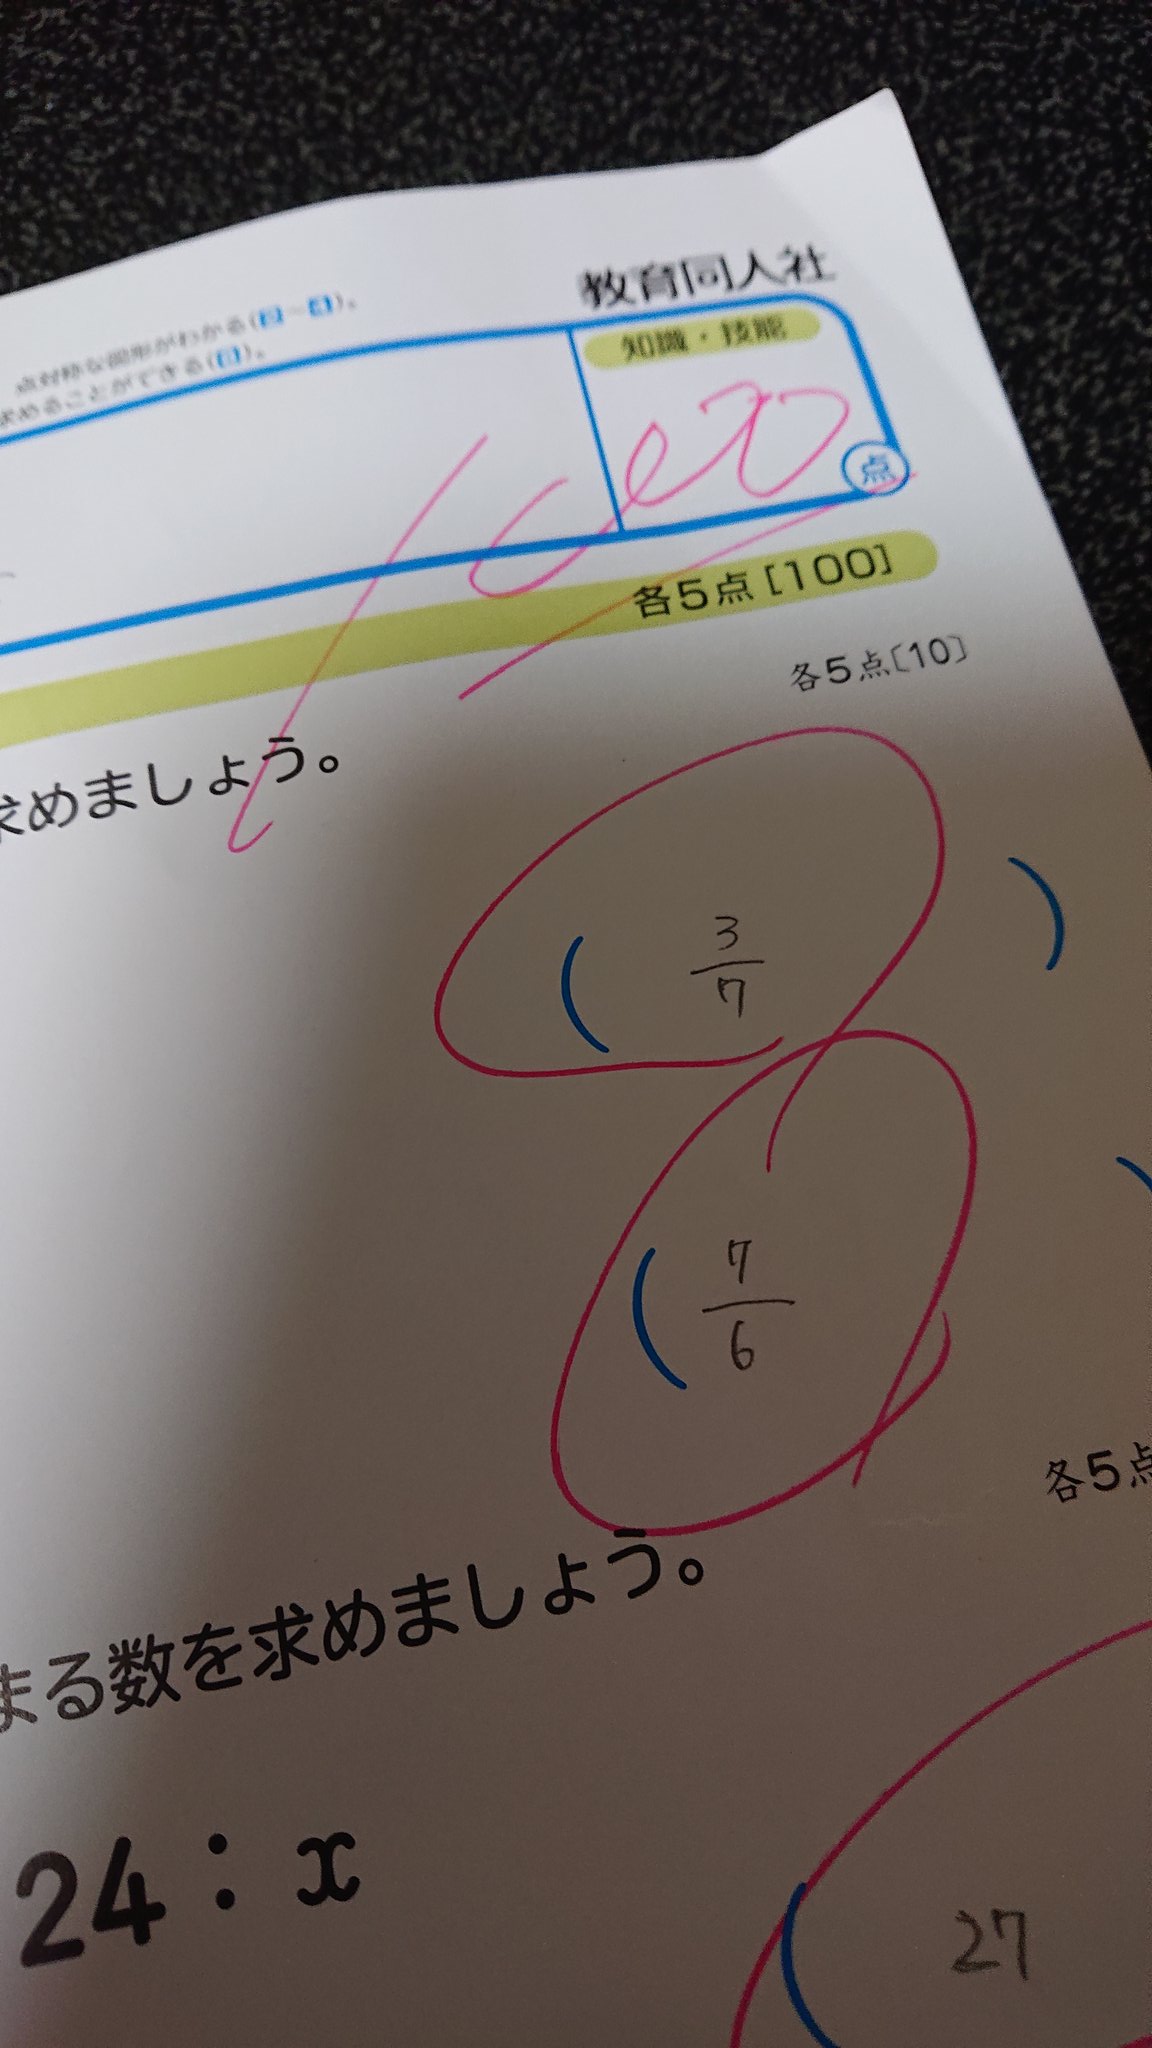 教育同人社
点対称な図形がわかる(2~4)。
求めることができる(5)。
知識・技能
100
点
各5点[100]
各5点[10]
求めましょう。
( 3/7 )
( 7/6 )
各5点
まる数を求めましょう。
24:x
( 27